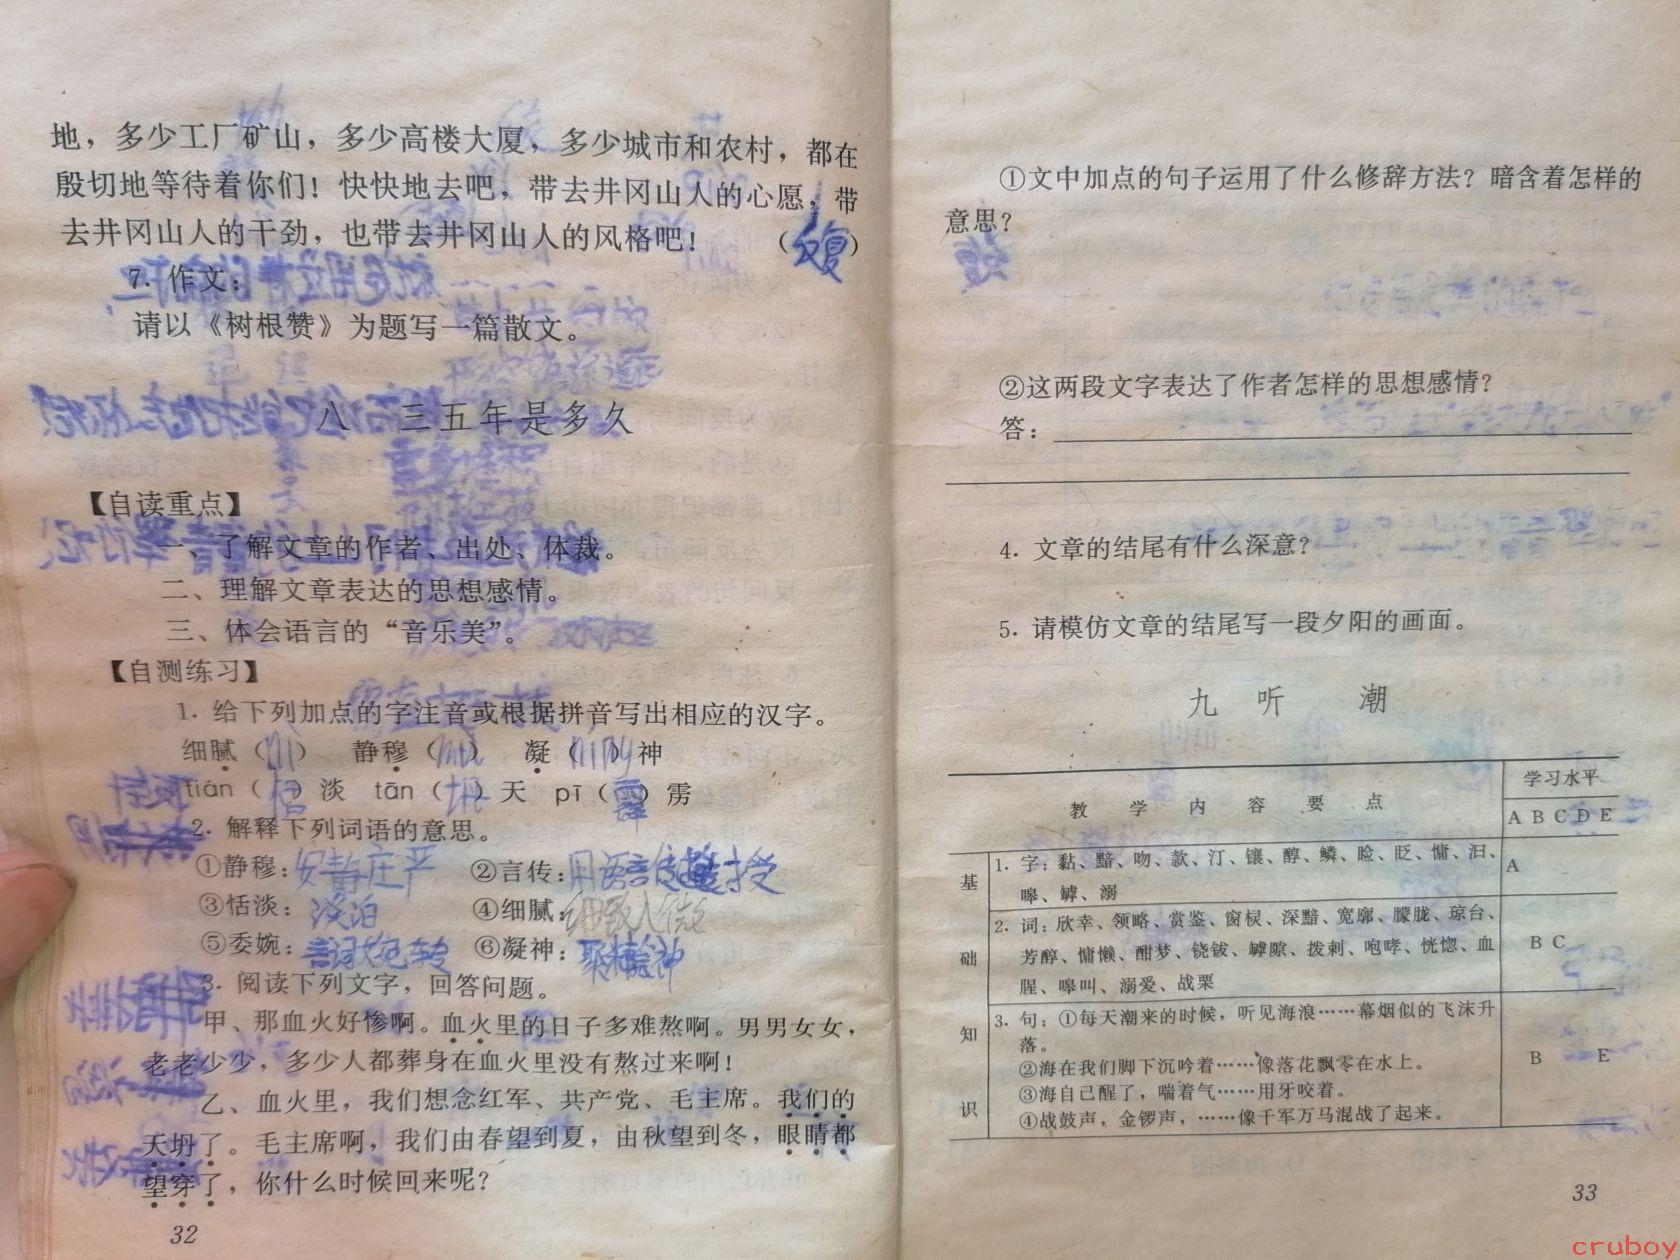 地，多少工厂矿山，多少高楼大厦，多少城市和农村，都在
殷切地等待着你们！快快地去吧，带去井冈山人的心愿，带
去井冈山人的干劲，也带去井冈山人的风格吧！（反复）
7. 作文：
请以《树根赞》为题写一篇散文。
八 三五年是多久
【自读重点】
一、了解文章的作者、出处、体裁。
二、理解文章表达的思想感情。
三、体会语言的“音乐美”。
【自测练习】
1. 给下列加点的字注音或根据拼音写出相应的汉字。
细腻（nì） 静穆（mù） 凝（níng）神
tián（恬）淡 tān（坍）天 pī（霹）雳
2. 解释下列词语的意思。
①静穆：安静庄严 ②言传：用语言传授
③恬淡：淡泊 ④细腻：细致入微
⑤委婉：言词婉转 ⑥凝神：聚精会神
3. 阅读下列文字，回答问题。
甲、那血火好惨啊。血火里的日子多难熬啊。男男女女，
老老少少，多少人都葬身在血火里没有熬过来啊！
乙、血火里，我们想念红军、共产党、毛主席。我们的
天坍了。毛主席啊，我们由春望到夏，由秋望到冬，眼睛都
望穿了，你什么时候回来呢？
32
①文中加点的句子运用了什么修辞方法？暗含着怎样的
意思？
②这两段文字表达了作者怎样的思想感情？
答：
4. 文章的结尾有什么深意？
5. 请模仿文章的结尾写一段夕阳的画面。
九 听 潮
教 学 内 容 要 点 学习水平
A B C D E
基础知识
1. 字：黏、黯、吻、款、汀、镶、醇、鳞、睑、眨、慵、汩、 A
嗥、罅、溺
2. 词：欣幸、领略、赏鉴、窗棂、深黯、宽廓、朦胧、琼台、
芳醇、慵懒、酣梦、铙钹、罅隙、拨剌、咆哮、恍惚、血 B C
腥、嗥叫、溺爱、战栗
3. 句：①每天潮来的时候，听见海浪……幕烟似的飞沫升
落。
②海在我们脚下沉吟着……像落花飘零在水上。 B E
③海自己醒了，喘着气……用牙咬着。
④战鼓声，金锣声，……像千军万马混战了起来。
33
cruboy